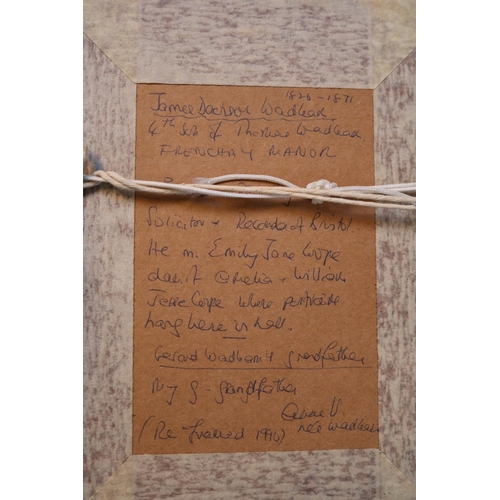 1826 - 1871
James Wadham
4th son of Thomas Wadham
FRENCHAY MANOR
Solicitor + Recorder of Bristol.
He m. Emily Jane Corpe
dau. of Amelia + William
Jesse Corpe whose portraits
hang here in hall.
Gerard Wadham's grandfather
My g - grandfather
Anne V.
née Wadham
(Re framed 1990)